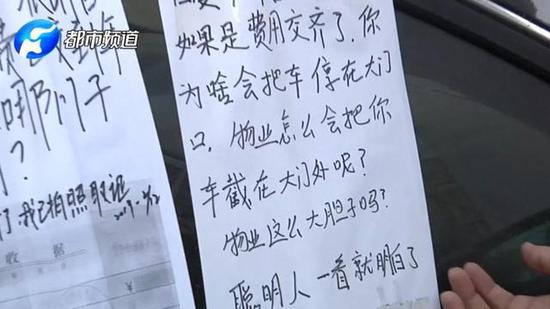 都市频道
如果是费用交齐了.你
为啥会把车停在大门
口.物业怎么会把你
车截在大门处呢?
物业这么大胆子吗?
聪明人一看就明白了
哪门子
?
我已拍照取证
收据